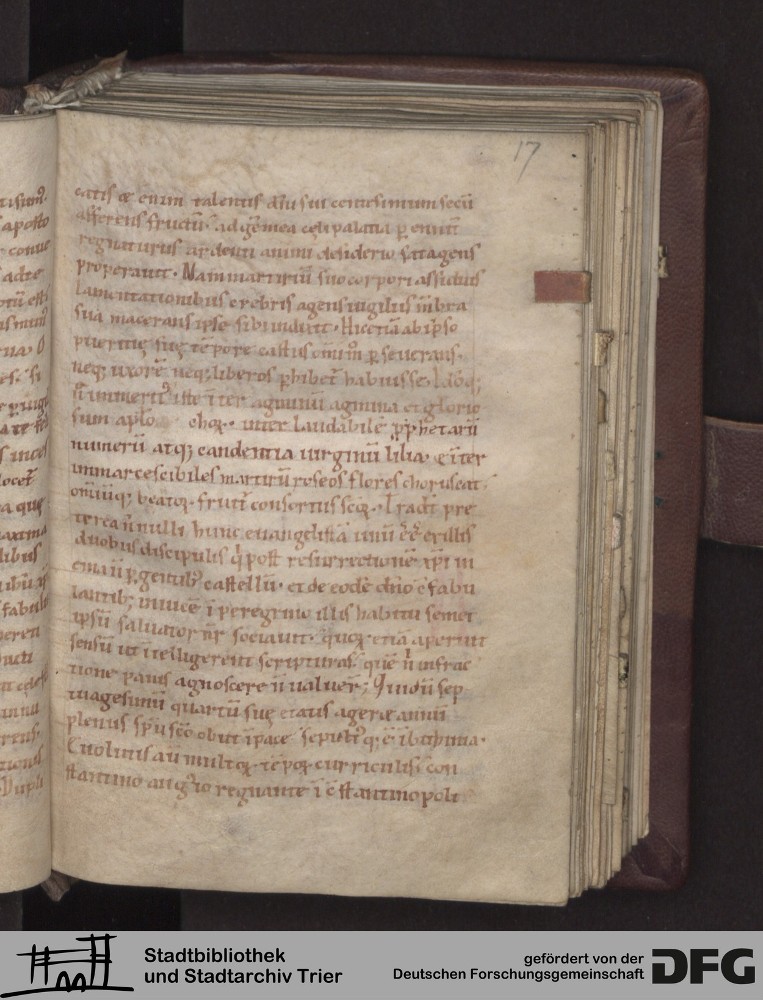 17
catis & enim talentis dñi sui centesimum secū
afferens fructū· ad gẽmea cęli palatia ꝑuenit
regnaturus ardenti animi desiderio satagens
properauit· Nam martiriū suo corpori assiduis
lamentationibus crebris agens uigiliis mẽbra
sua macerans ipse sibi induxit· Hic etiā ab ipso
pueritię suę tẽpore castus om̄i perseuerans·
neq; uxorē neq; liberos ꝑhibet̃ habuisse·
sũm aplo chorꝯ· inter laudabilē ꝓphetarū
numerū atq; candentia uirginū lilia· & ĩter
inmarcescibiles martirū roseos flores choruscat
om̄iūq; beatoꝝ· fruit̃ consortiis
terea ñnulli hunc euangelistā unū ẽẽ ex illis
duobus discipulis q̇ post resurrectionē xp̄i in
emaū ꝑgentib; castellū· et de eodē dñō c̄fabu
lantib; inuicē ĩ peregrino illis habitu semet
ipsū saluator ñr sociauit· quoꝝ etiā aperuit
sensū ut ĩtelligerent scripturas· quē ĩ infrac
tione panis agnoscere ñ ualuer̃; Qui dū sep
tuagesimū quartū suę etatis ageret annū
plenus sp̄u sc̄o obiit ĩ pace sepultꝰq; ẽ ĩ bithinia·
Euolutis aū multoꝝ tẽpoꝝ curriculis· con
stantino augꝰto regnante ĩ c̄stantinopoli
Stadtbibliothek
und Stadtarchiv Trier
gefördert von der
Deutschen Forschungsgemeinschaft
DFG